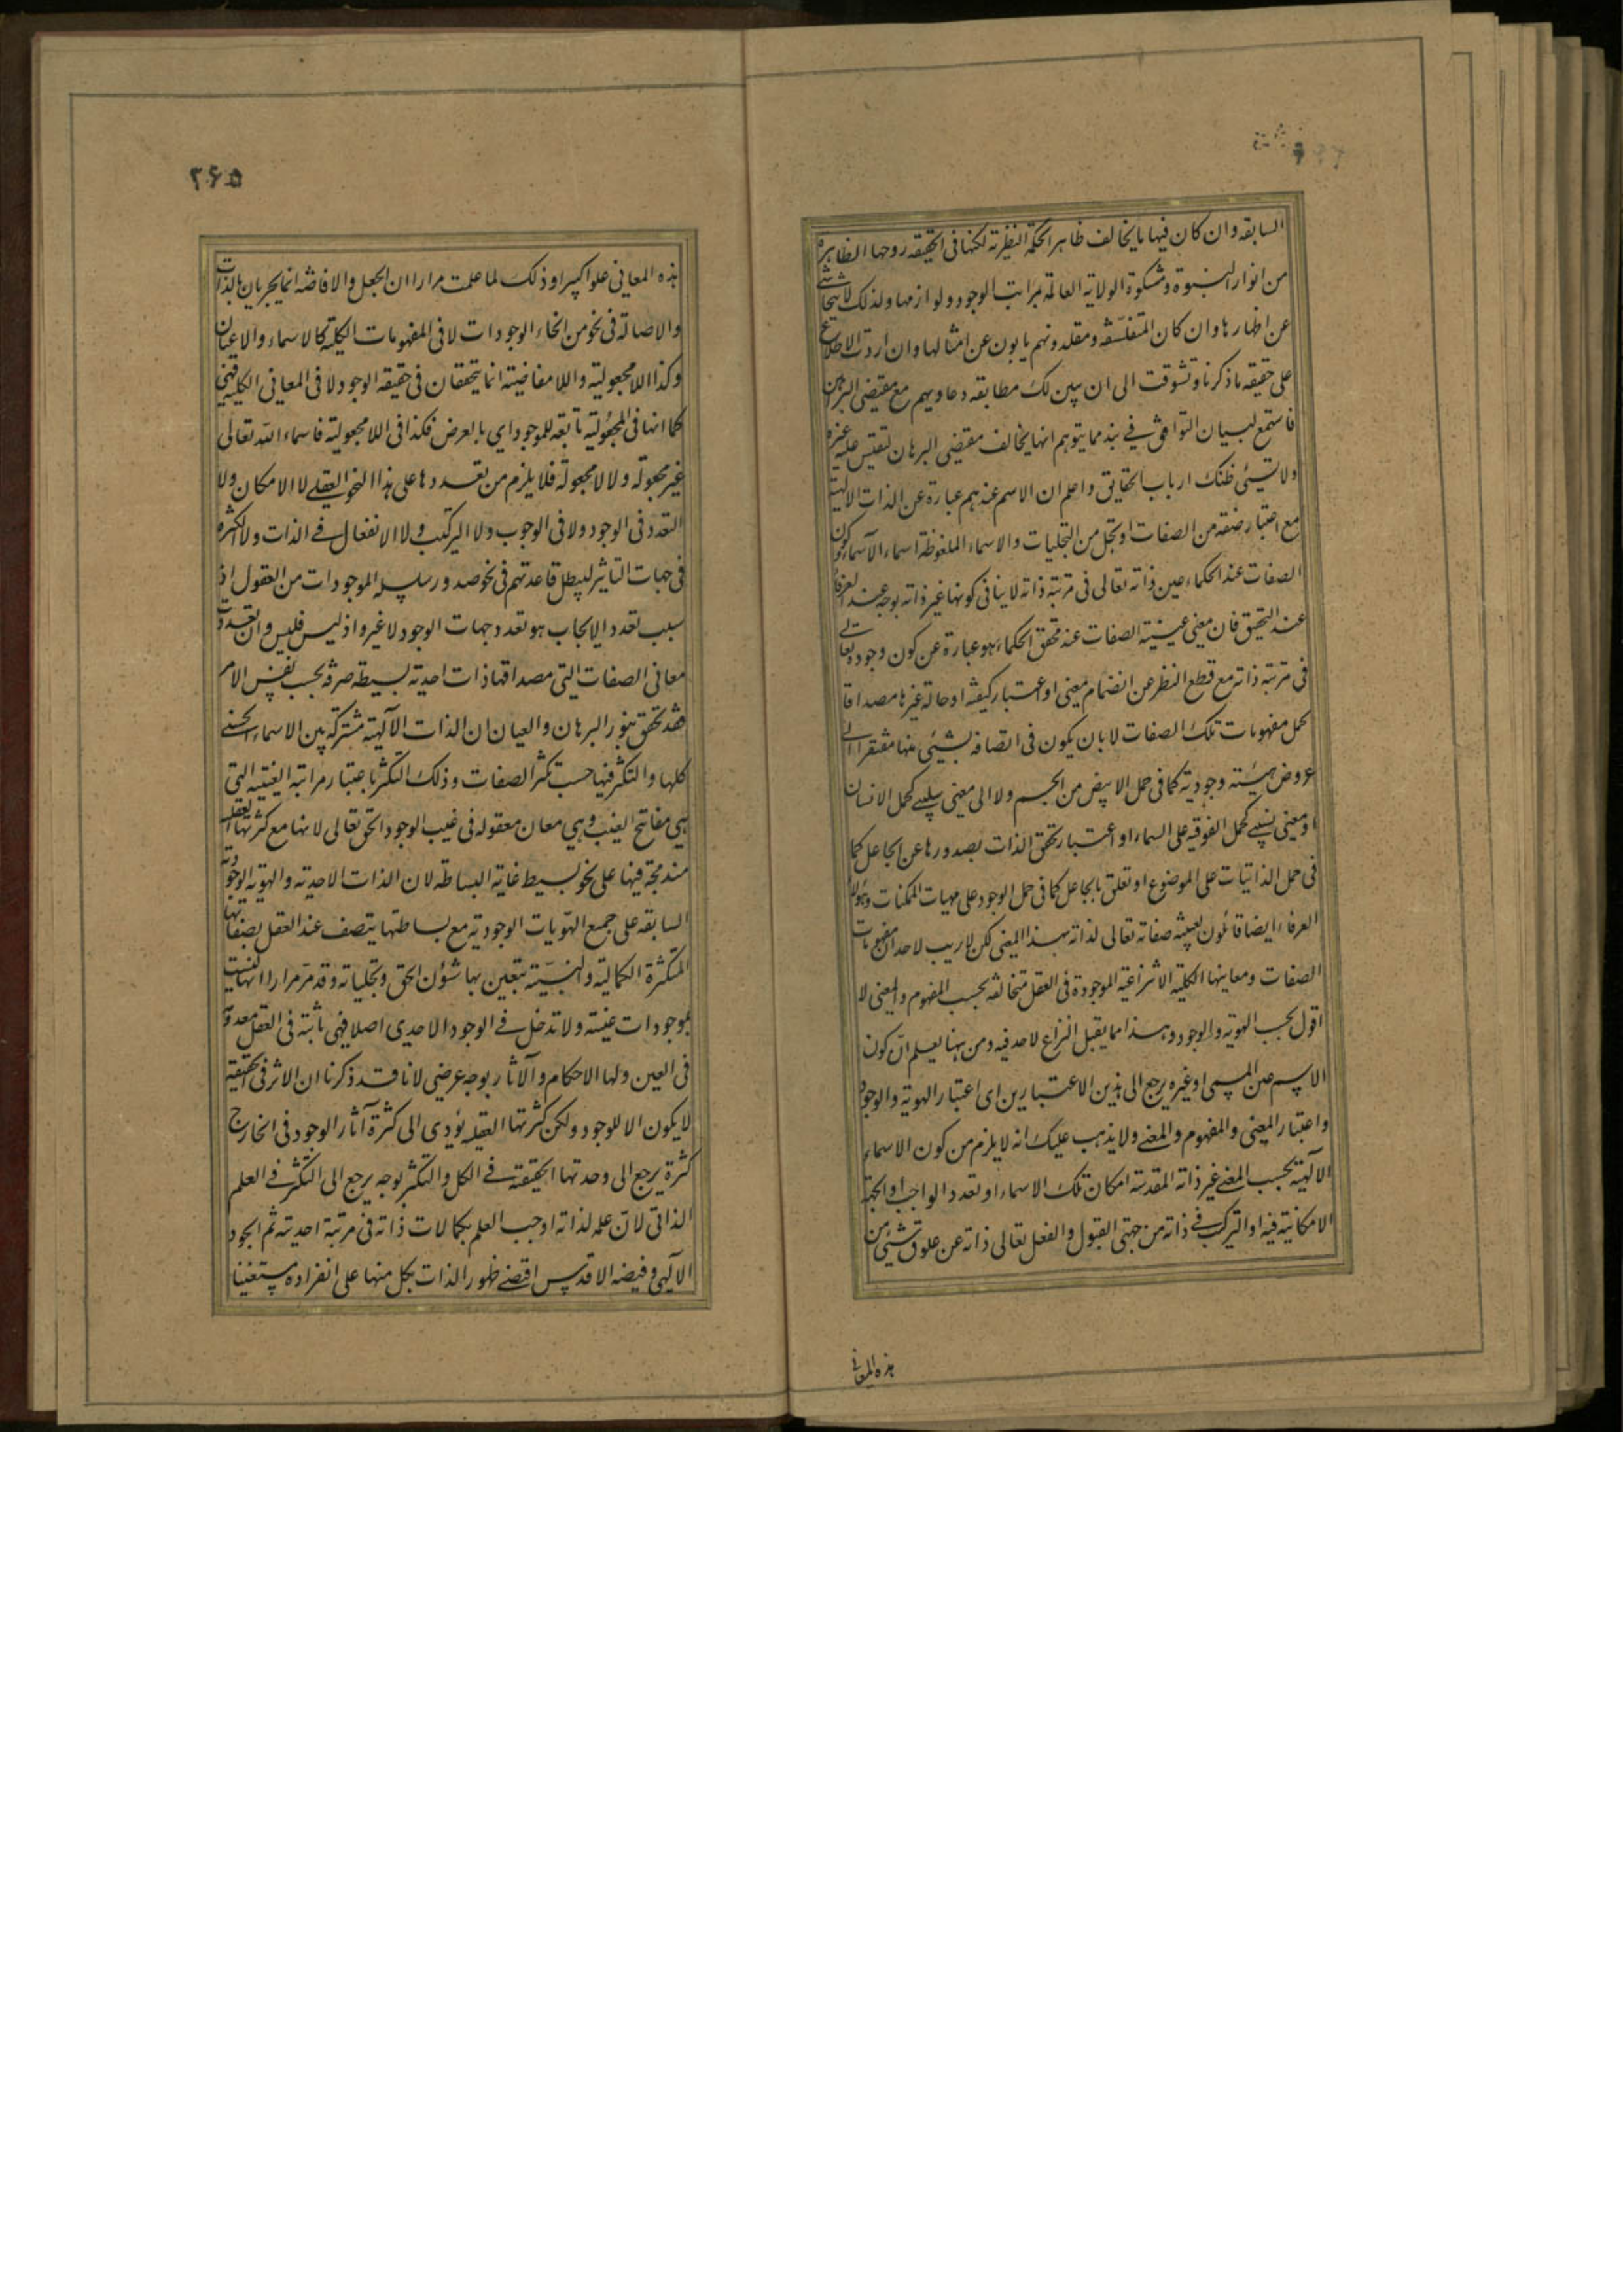 السابقه وان كان فيها ما يخالف ظاهر الحكمة النظرية لكنها فى الحقيقه روحها الظاهرة
من انوار النبوة ومشكوة الولاية العالمة بمراتب الوجود ولوازمها ولذلك لا يتحاشى
عن اظهارها وان كان المتفلسفه ومقلدوهم يابون عن امثالها وان اردت الاطلاع
على حقيقه ما ذكرنا وتشوقت الى ان يبين لك مطابقه دعاويهم مع مقتضى البرهان
فاستمع لبيان التوافق فى نبذ مما يتوهم انها يخالف مقتضى البرهان لتقيس عليه غيره
ولا تسيئى ظنك ارباب الحقايق واعلم ان الاسم عندهم عبارة عن الذات الالهية
مع اعتبار صفه من الصفات او تجل من التجليات والاسماء الملفوظة اسماء الاسماء وكون
الصفات عند الحكماء عين ذاته تعالى فى مرتبة ذاته لا ينافى كونها غير ذاته بوجه عند العرفا
عند التحقيق فان معنى عينية الصفات عند محقق الحكماء هو عبارة عن كون وجوده تعالى
فى مرتبة ذاته مع قطع النظر عن انضمام معنى او اعتبار كيفية او حالة غيرها مصداقا
لحمل مفهومات تلك الصفات لا بان يكون فى اتصافه بشيئى منها مفتقرا الى
عروض هيئته وجودية كما فى حمل الابيض من الجسم ولا الى معنى سلبى كحمل الانسان
او معنى نسبى كحمل الفوقيه على السماء او اعتبار تحقق الذات بصدورها عن الجاعل كما
فى حمل الذاتيات على الموضوع او تعلق بالجاعل كما فى حمل الوجود على مهيات الممكنات وهؤلاء
العرفاء ايضا قائلون لعينية صفاته تعالى لذاته بهذا المعنى لكن لا ريب لاحد ان مفهومات
الصفات ومعاينها الكلية الانتزاعية الموجودة فى العقل متخالفه بحسب المفهوم والمعنى لا
اقول بحسب الهوية والوجود وهذا مما يقبل النزاع لاحد فيه ومن ههنا يعلم ان كون
الاسم عين المسمى او غيره يرجع الى هذين الاعتبارين اى اعتبار الهوية والوجود
واعتبار المعنى والمفهوم والمعنى ولا يذهب عليك انه لا يلزم من كون الاسماء
الآلهية بحسب المعنى غير ذاته المقدسة امكان تلك الاسماء او تعدد الواجب او الجهة
الامكانية فيه او التركب فى ذاته من جهتى القبول والفعل تعالى ذاته عن علوق شيئى من
هذه المعانى
٢۶۵
هذه المعانى علوا كبيرا وذلك لما علمت مرارا ان الجعل والافاضه انما يجريان بالذات
والاصالة فى نحو من انحاء الوجودات لا فى المفهومات الكلية كالاسماء والاعيان
وكذا اللامجعولية واللامفاضية انما يتحققان فى حقيقه الوجود لا فى المعانى الكلية فهى
كما انها فى المجعولية تابعه للموجود اى بالعرض فكذا فى اللامجعولية فاسماء الله تعالى
غير مجعولة ولا لامجعولة فلا يلزم من تعددها على هذا النحو العقلى لا الامكان ولا
التعدد فى الوجود ولا فى الوجوب ولا التركب ولا الانفعال فى الذات ولا الكثرة
فى جهات التاثير ليبطل قاعدتهم فى نحو صدور سلسلة الموجودات من العقول اذ
سبب تعدد الايجاب هو تعدد جهات الوجود لا غير واذ ليس فليس وان تعددت
معانى الصفات التى مصداقها ذات احدية بسيطة صرفه بحسب نفس الامر
فقد تحقق بنور البرهان والعيان ان الذات الآلهية مشتركة بين الاسماء الحسنى
كلها والتكثر فيها حسب تكثر الصفات وذلك التكثر باعتبار مراتبه الغيبية التى
هى مفاتح الغيب وهى معان معقوله فى غيب الوجود الحق تعالى لانها مع كثرتها العقليه
مندمجة فيها على نحو بسيط غاية البساطة لان الذات الاحدية والهوية الوجودية
السابقه على جميع الهويات الوجودية مع بساطتها يتصف عند العقل بصفاتها
المتكثرة الكمالية والنسبية يتعين بها شؤن الحق وتجلياته وقد مر مرارا انها ليست
بموجودات عينية ولا تدخل فى الوجود الاحدى اصلا فهى ثابتة فى العقل معدومة
فى العين ولها الاحكام والآثار بوجه عرضى لانا قد ذكرنا ان الاثر فى الحقيقة
لا يكون الا للوجود ولكن كثرتها العقلية يؤدى الى كثرة آثار الوجود فى الخارج
كثرة يرجع الى وحدتها الحقيقة فى الكل والتكثر بوجه يرجع الى التكثر فى العلم
الذاتى لان علمه لذاته اوجب العلم بكمالات ذاته فى مرتبة احديته ثم الجود
الآلهى وفيضه الاقدس اقتضى ظهور الذات بكل منها على انفراده مستغنيا